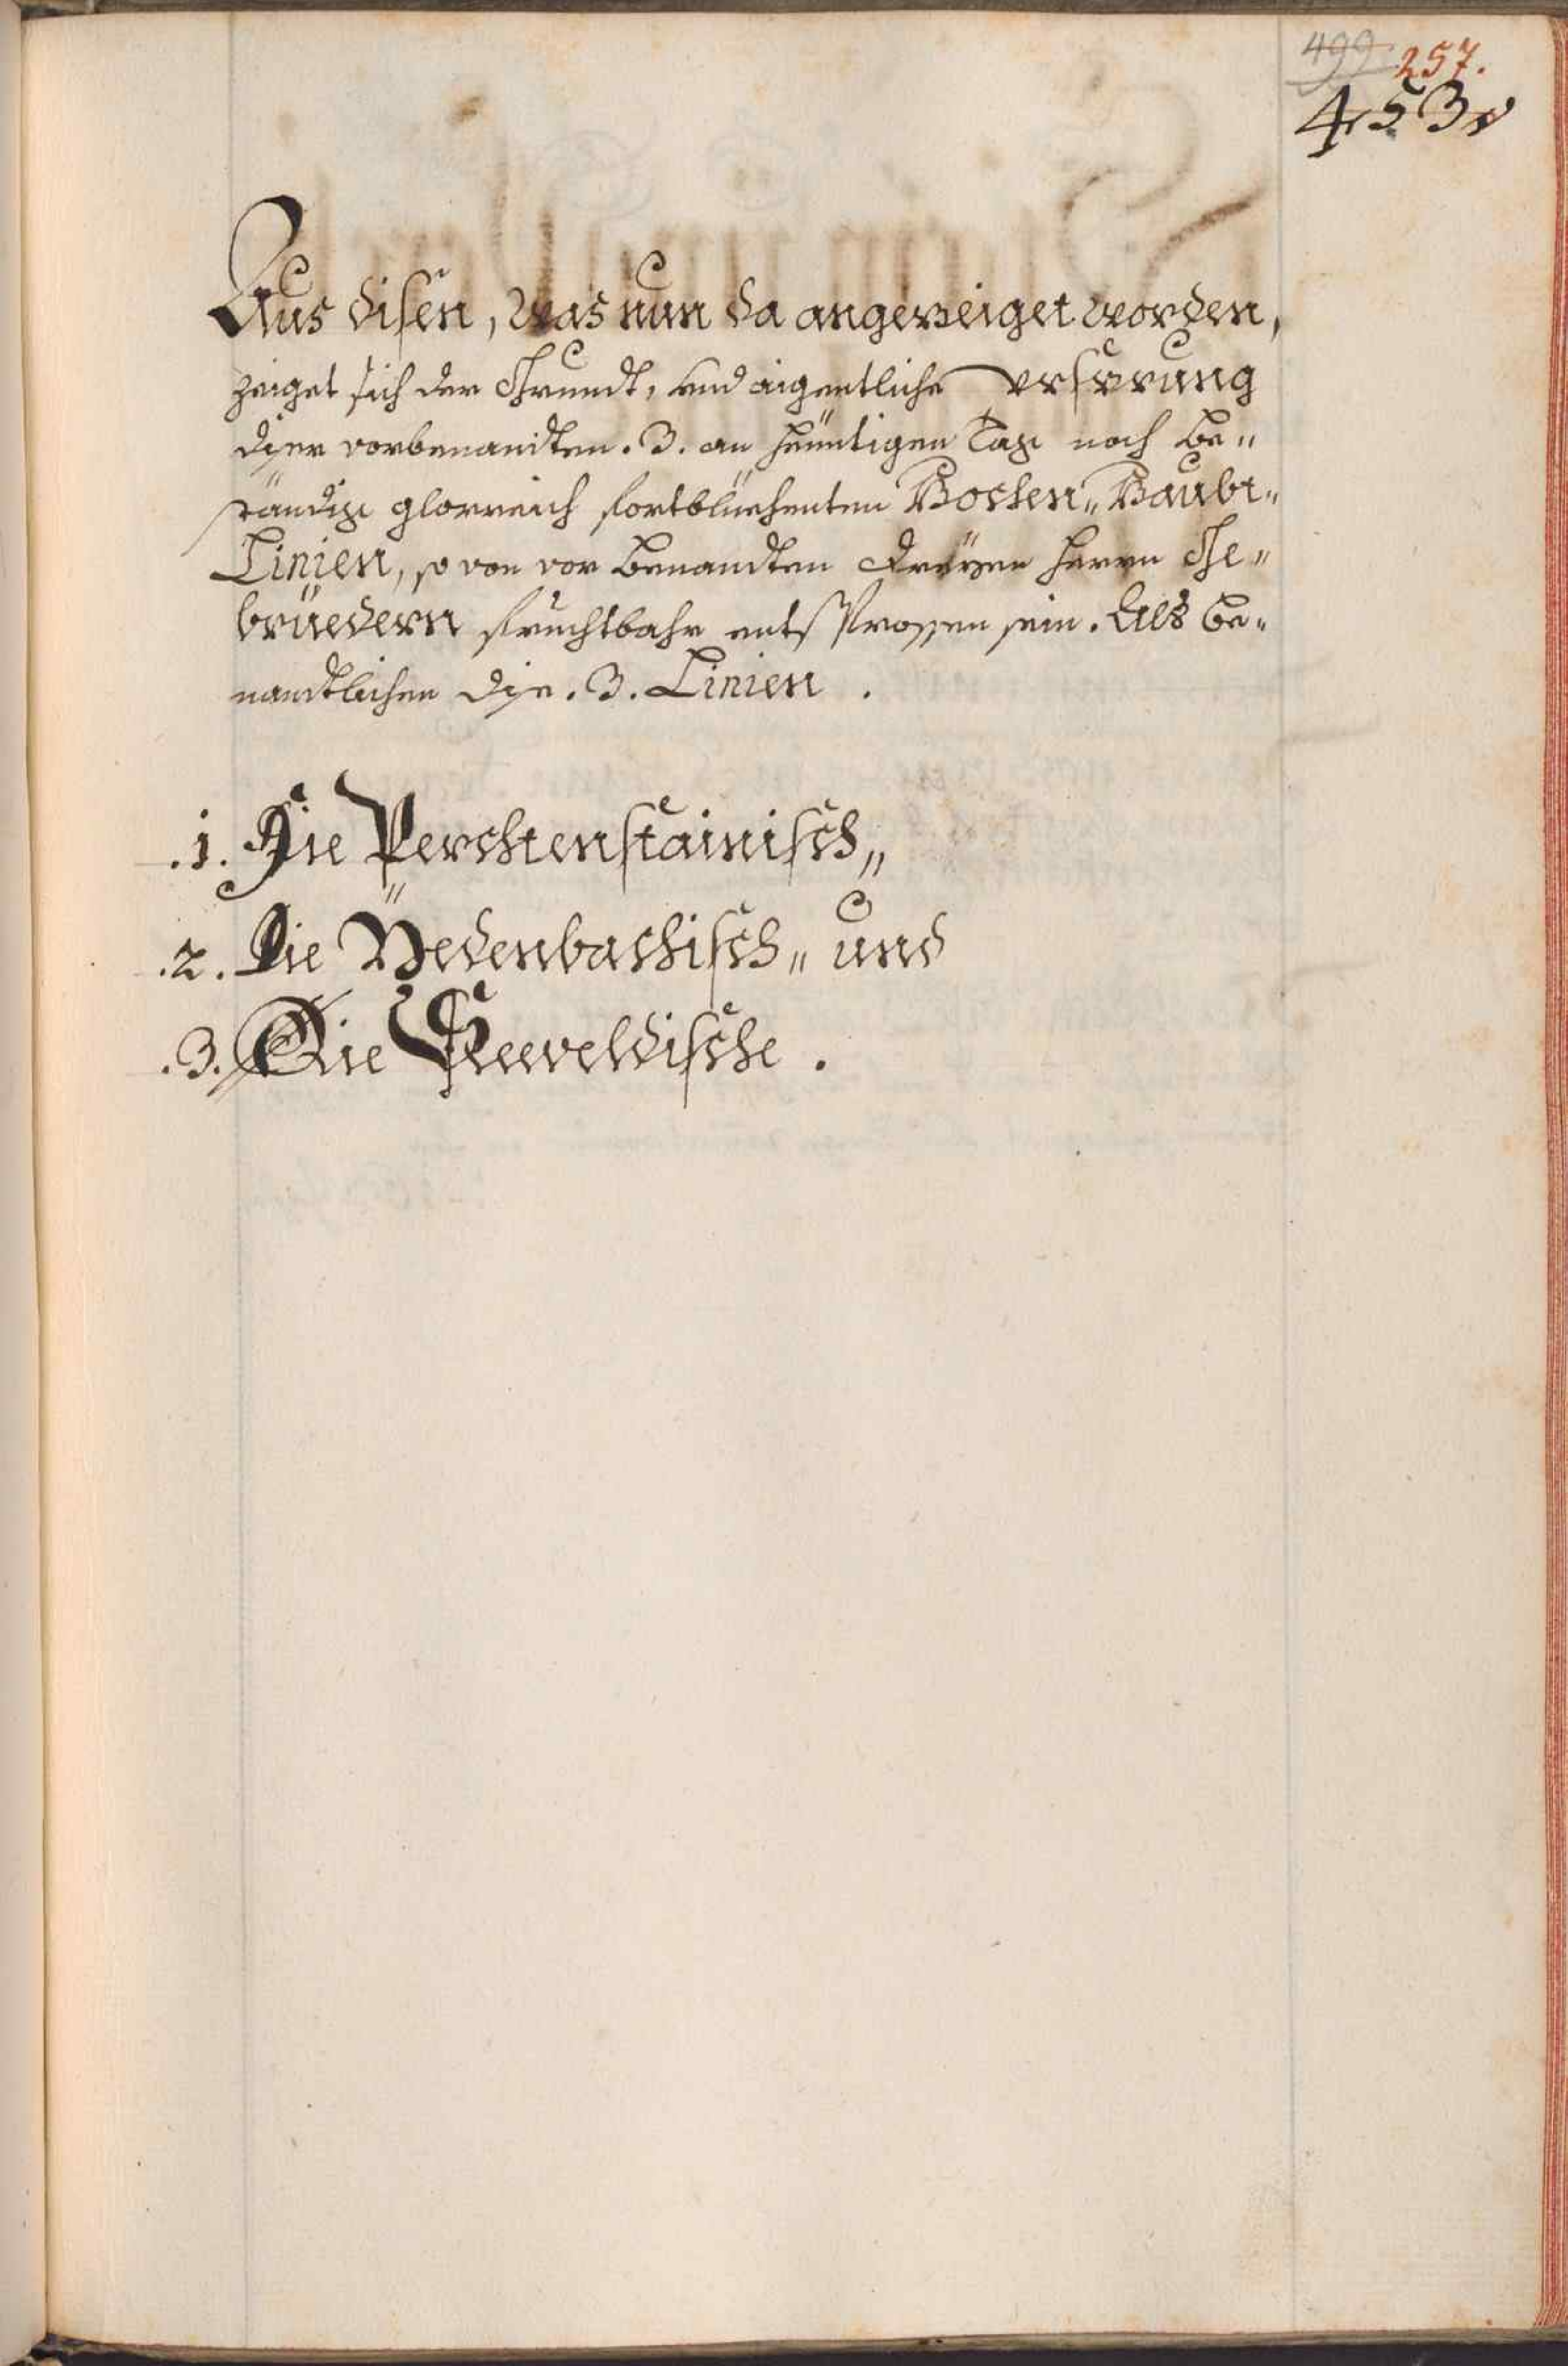 499. 257.
453
Aus disen, Was nun da angezeiget worden,
zeiget sich der Grundt, und aigentliche Ursprung
diser vorbenandten .3. an heüntigen Tag noch be„
ständig glorreich fortblüehenten Hochen„ Haubt„
Linien, so von vor benandten dreÿen Herrn Ge„
brüedern fruchtbahr entsprossen sein. Als be„
nandtlichen dise .3. Linien .
.1. Die Perchtenstainisch„
.2. Die Vedenbachisch„ und
.3. Die Seeveldische .